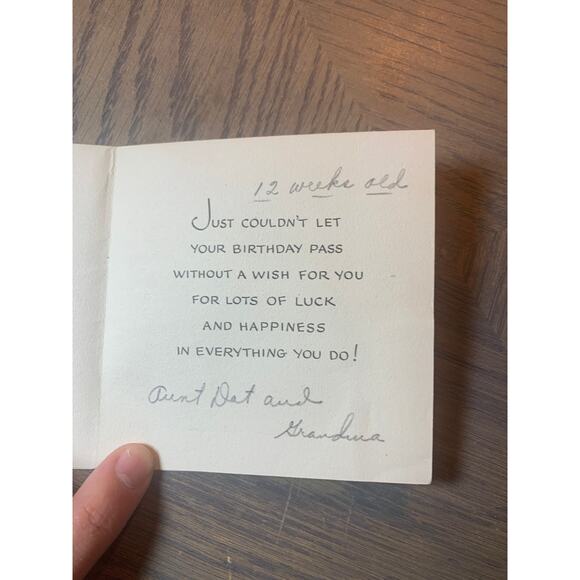 12 weeks old
JUST COULDN'T LET
YOUR BIRTHDAY PASS
WITHOUT A WISH FOR YOU
FOR LOTS OF LUCK
AND HAPPINESS
IN EVERYTHING YOU DO!
Aunt Dot and
Grandma